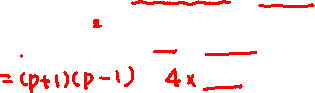 =(p+1)(p-1) 4x